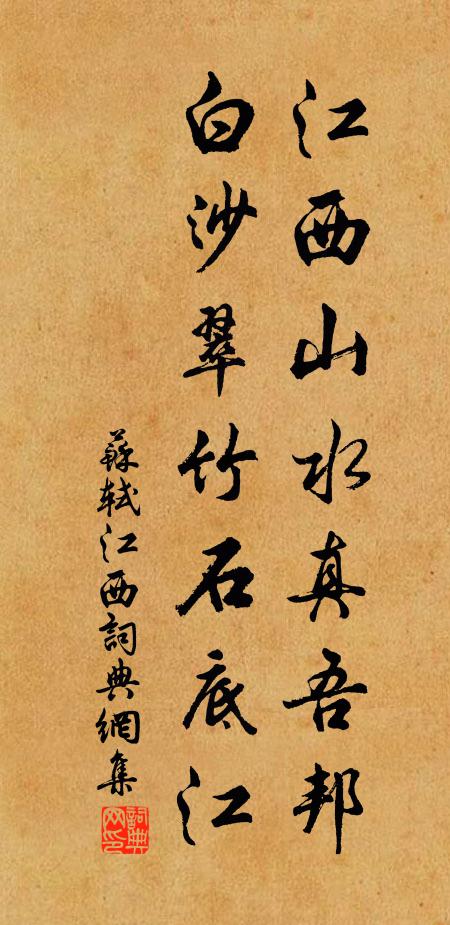 江西山水真吾邦
白沙翠竹石底江
蘇軾江西詞典網集
詞典网印